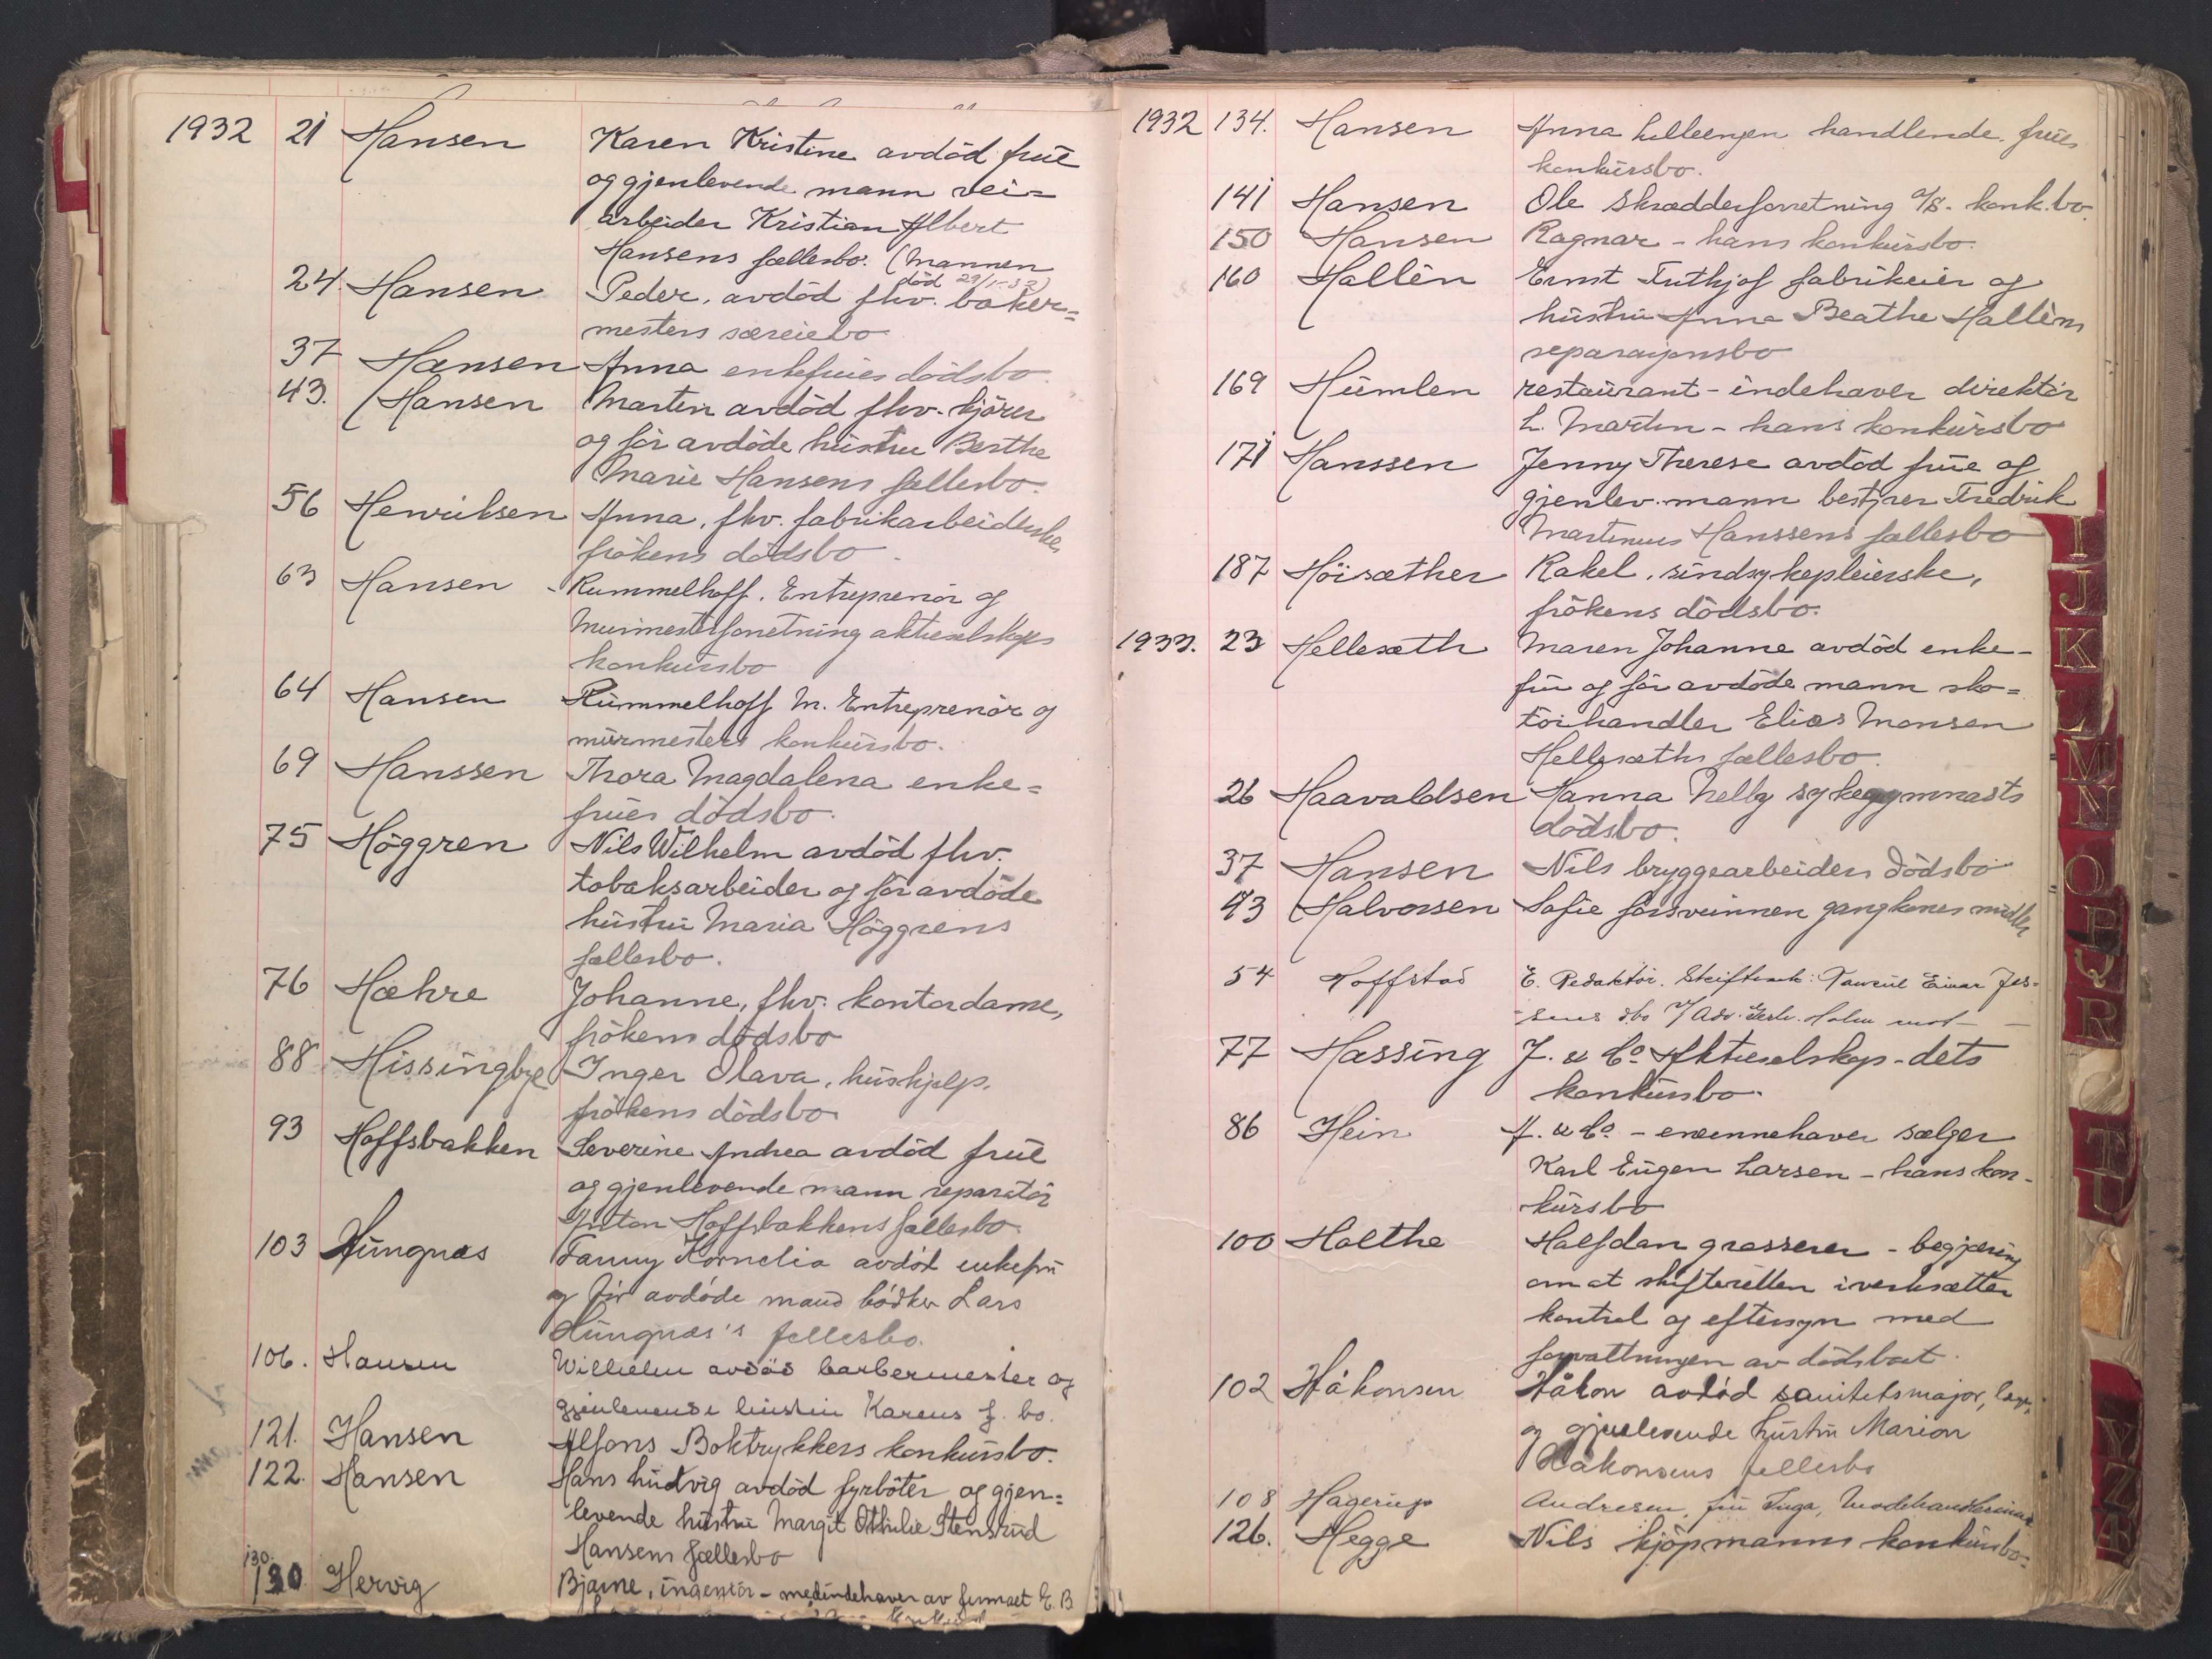 1932 21 Hansen Karen Kristine avdöd frue
og gjenlevende mann vei=
arbeider Kristian Albert
Hansens fællesbo. (Mannen
död 29/1-32)
24. Hansen Peder, avdöd fhv. baker=
mesters særeiebo
37 Hansen Anna enkefrues dödsbo
43. Hansen Martin avdöd fhv. kjörer
og för avdöde hustru Berthe
Marie Hansens fællesbo.
56 Henriksen Anna, fhv. fabrikarbeiderske,
frökens dödsbo.
63 Hansen - Rummelhoff. Entreprenör og
Murmesterforretning aktieselskaps
konkursbo
64 Hansen Rummelhoff M. Entreprenör og
murmesters konkursbo.
69 Hanssen Thora Magdalena enke=
frues dödsbo.
75 Häggren Nils Wilhelm avdöd fhv.
tobaksarbeider og för avdöde
hustru Maria Häggrens
fællesbo.
76 Hæhre Johanne, fhv. kontordame,
frökens dödsbo
88 Hissingbye Inger Olava, hushjelp,
frökens dödsbo
93 Hoffsbakken Severine Andrea avdöd frue
og gjenlevende mann reparatör
Anton Hoffsbakkens fællesbo.
103 Hungnæs Fanny Kornelia avdöd enkefru
og för avdöde mand bödker Lars
Hungnæs's fellesbo.
106. Hansen Wilhelm avdöd barbermester og
gjenlevende hustru Karens f. bo.
121. Hansen Alfons Boktrykkers konkursbo.
122. Hansen Hans Ludvig avdöd fyrböter og gjen=
levende hustru Margit Othilie Stensrud
Hansens fællesbo
130.
130 Hervig Bjarne, ingeniör - medindehaver av firmaet E. B
1932 134. Hansen Anna Lilleengen handlende, frues
konkursbo.
141 Hansen Ole Skrædderforretning A/S. konk.bo.
150 Hansen Ragnar - hans konkursbo.
160 Hallén Ernst Frithjof fabrikeier og
hustru Anna Beathe Halléns
separasjonsbo
169 Humlen restaurant - indehaver direktör
L. Martin - hans konkursbo
171 Hanssen Jenny Therese avdöd frue og
gjenlev. mann bestyrer Fredrik
Martinius Hanssens fællesbo
187 Höisæther Rakel, sindsykepleierske,
frökens dödsbo.
1933. 23 Hellesæth Maren Johanne avdöd enke-
fru og för avdöde mann sko=
töihandler Elias Monsen
Hellesæths fællesbo.
26 Haavaldsen Hanna Nelly sykegymnasts
dödsbo.
37 Hansen Nils bryggearbeiders dödsbo
43 Halvorsen Sofie forsvunnen gangkones midler
54 Hoffstad E. Redaktör. Skiftesak: Einar Jes=
sens dbo v/ Adv. Holm mot
77 Hassing J. & Co Aktieselskap - dets
konkursbo.
86 Hein A. & Co. - eneinnehaver sælger
Karl Eugen Larsen - hans kon-
kursbo
100 Holthe Halfdan grosserer - begjæring
om at skifteretten iverksætter
kontrol og eftersyn med
forvaltningen av dödsboet.
102 Håkonsen Håkon avdöd sanitetsmajor, læge,
og gjenlevende hustru Marion
Håkonsens fellesbo
108 Hagerup Andresen, fru Inga,
126. Hegge Nils kjöpmanns konkursbo.
I
J
K
L
M
N
O
P
Q
R
T
U
Y
Z
Æ